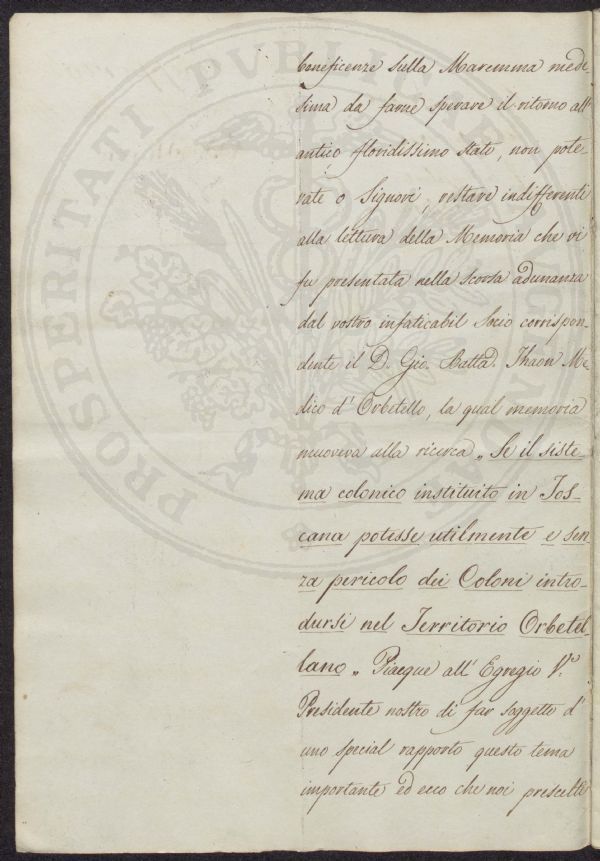 beneficenze sulla Maremma mede
sima da farne sperare il ritorno all'
antico floridissimo stato, non pote
vate o Signori, restare indifferenti
alla lettura della Memoria che vi
fu presentata nella scorsa adunanza
dal vostro infaticabil Socio corrispon-
dente il D. Gio. Batta. Thaon Me
dico d'Orbetello, la qual memoria
muoveva alla ricerca „ Se il siste-
ma colonico instituito in Tos-
cana potesse utilmente e sen
za pericolo dei Coloni intro-
dursi nel Territorio Orbetel-
lano „ Piacque all'Egregio V.
Presidente nostro di far soggetto d'
uno special rapporto questo tema
importante ed ecco che noi prescelti
PROSPERITATI PVBLICAE